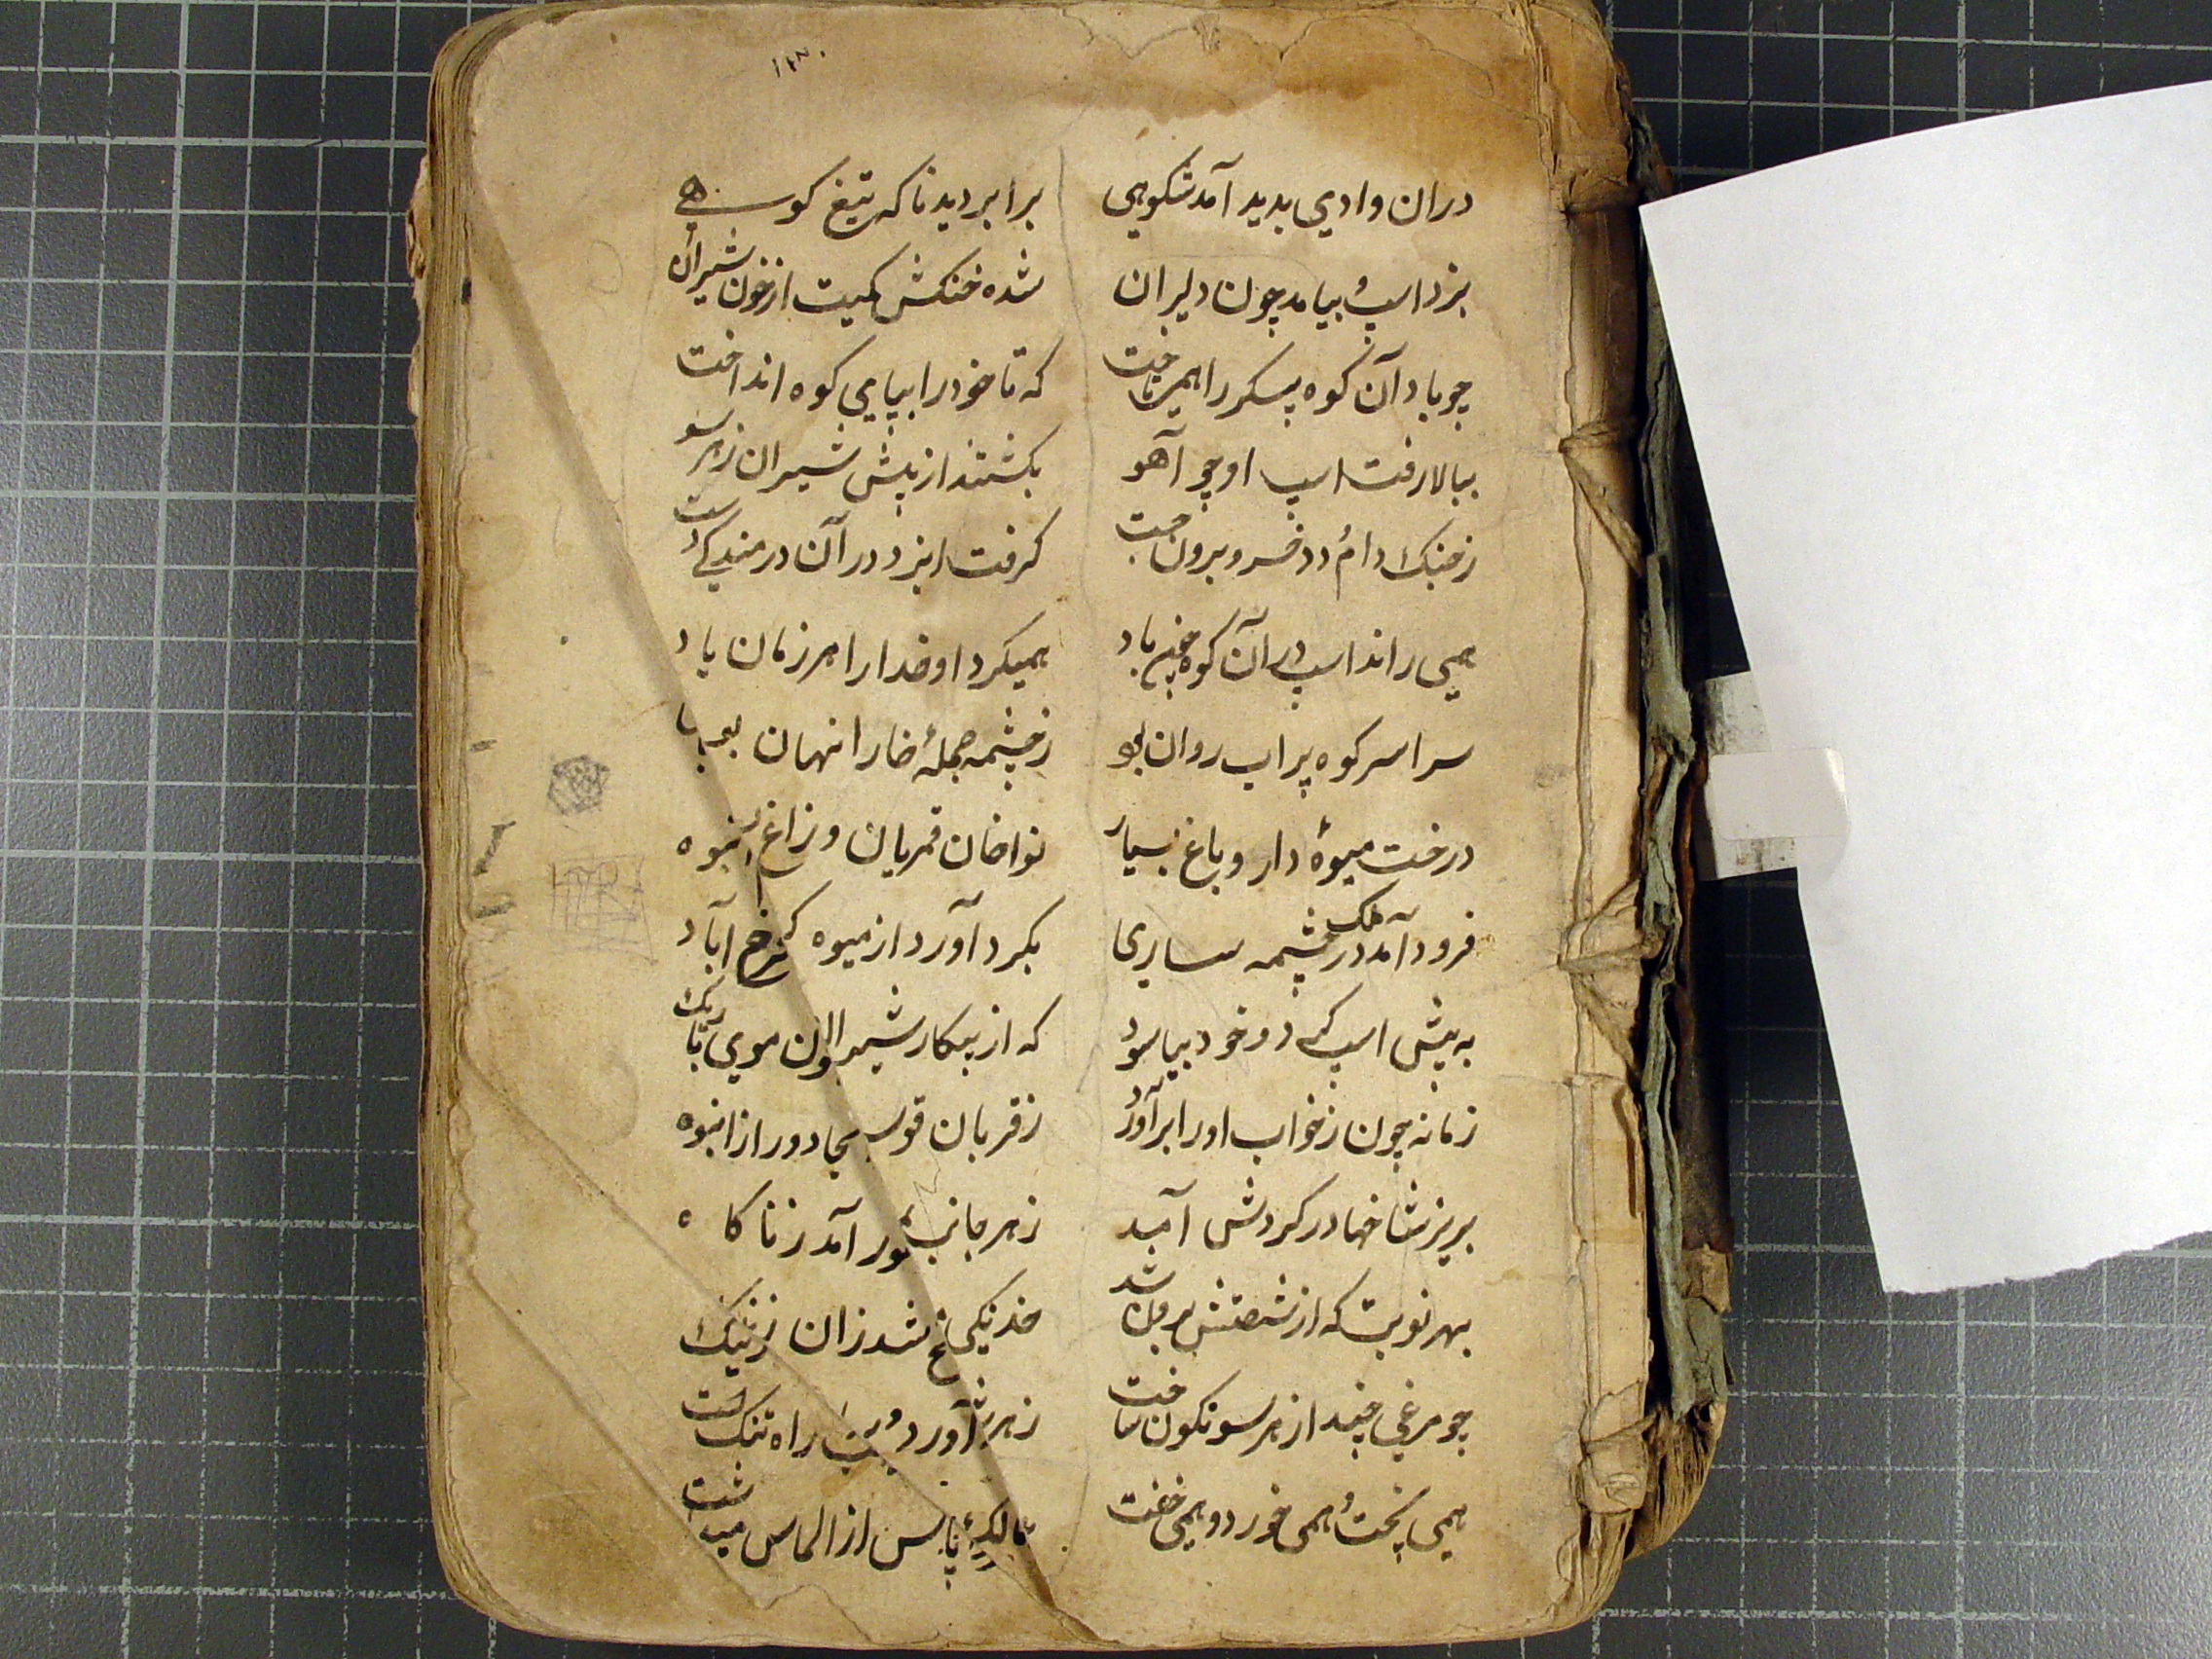 ۱۳۰
دران وادی بدید آمد شکوهی برابر دید ناکه تیغ کوهی
بزد اسپ بیامد چون دلیران شده خنکش کمیت از خون شیران
چو باد آن کوه پیکر را همی تاخت که تا خود را بپای کوه انداخت
ببالا رفت اسپ او چو آهو بکشتند از پیش شیران زهر سو
ز جنک دام دد خسرو برون جست گرفت ایزد در آن درمندکی دست
همی راند اسپ در آن کوه چون باد همیکرد او خدا را هر زمان یاد
سراسر کوه پر اب روان بو ز چشمه جمله خارا نهان
درخت میوه دار و باغ بسیار نواخان قمریان و زاغ
فرود آمد ملک در چشمه ساری بکرد آورد از میوه
به پیش اسپ کرد و خود بیاسود که از پیکار شیر موی
زمانه چون ز خواب اورا برآورد ز قربان قوس دور از انبوه
بریز شاخها در کردش آمد زهر جانب آمد ز ناکاه
بهر نوبت که از شصتش برون شد خدنکی شد زان
چو مرغی چند از هر سو نکون ساخت زهر آورد راه تنک
همی پخت همی خورد و همی خفت از الماس